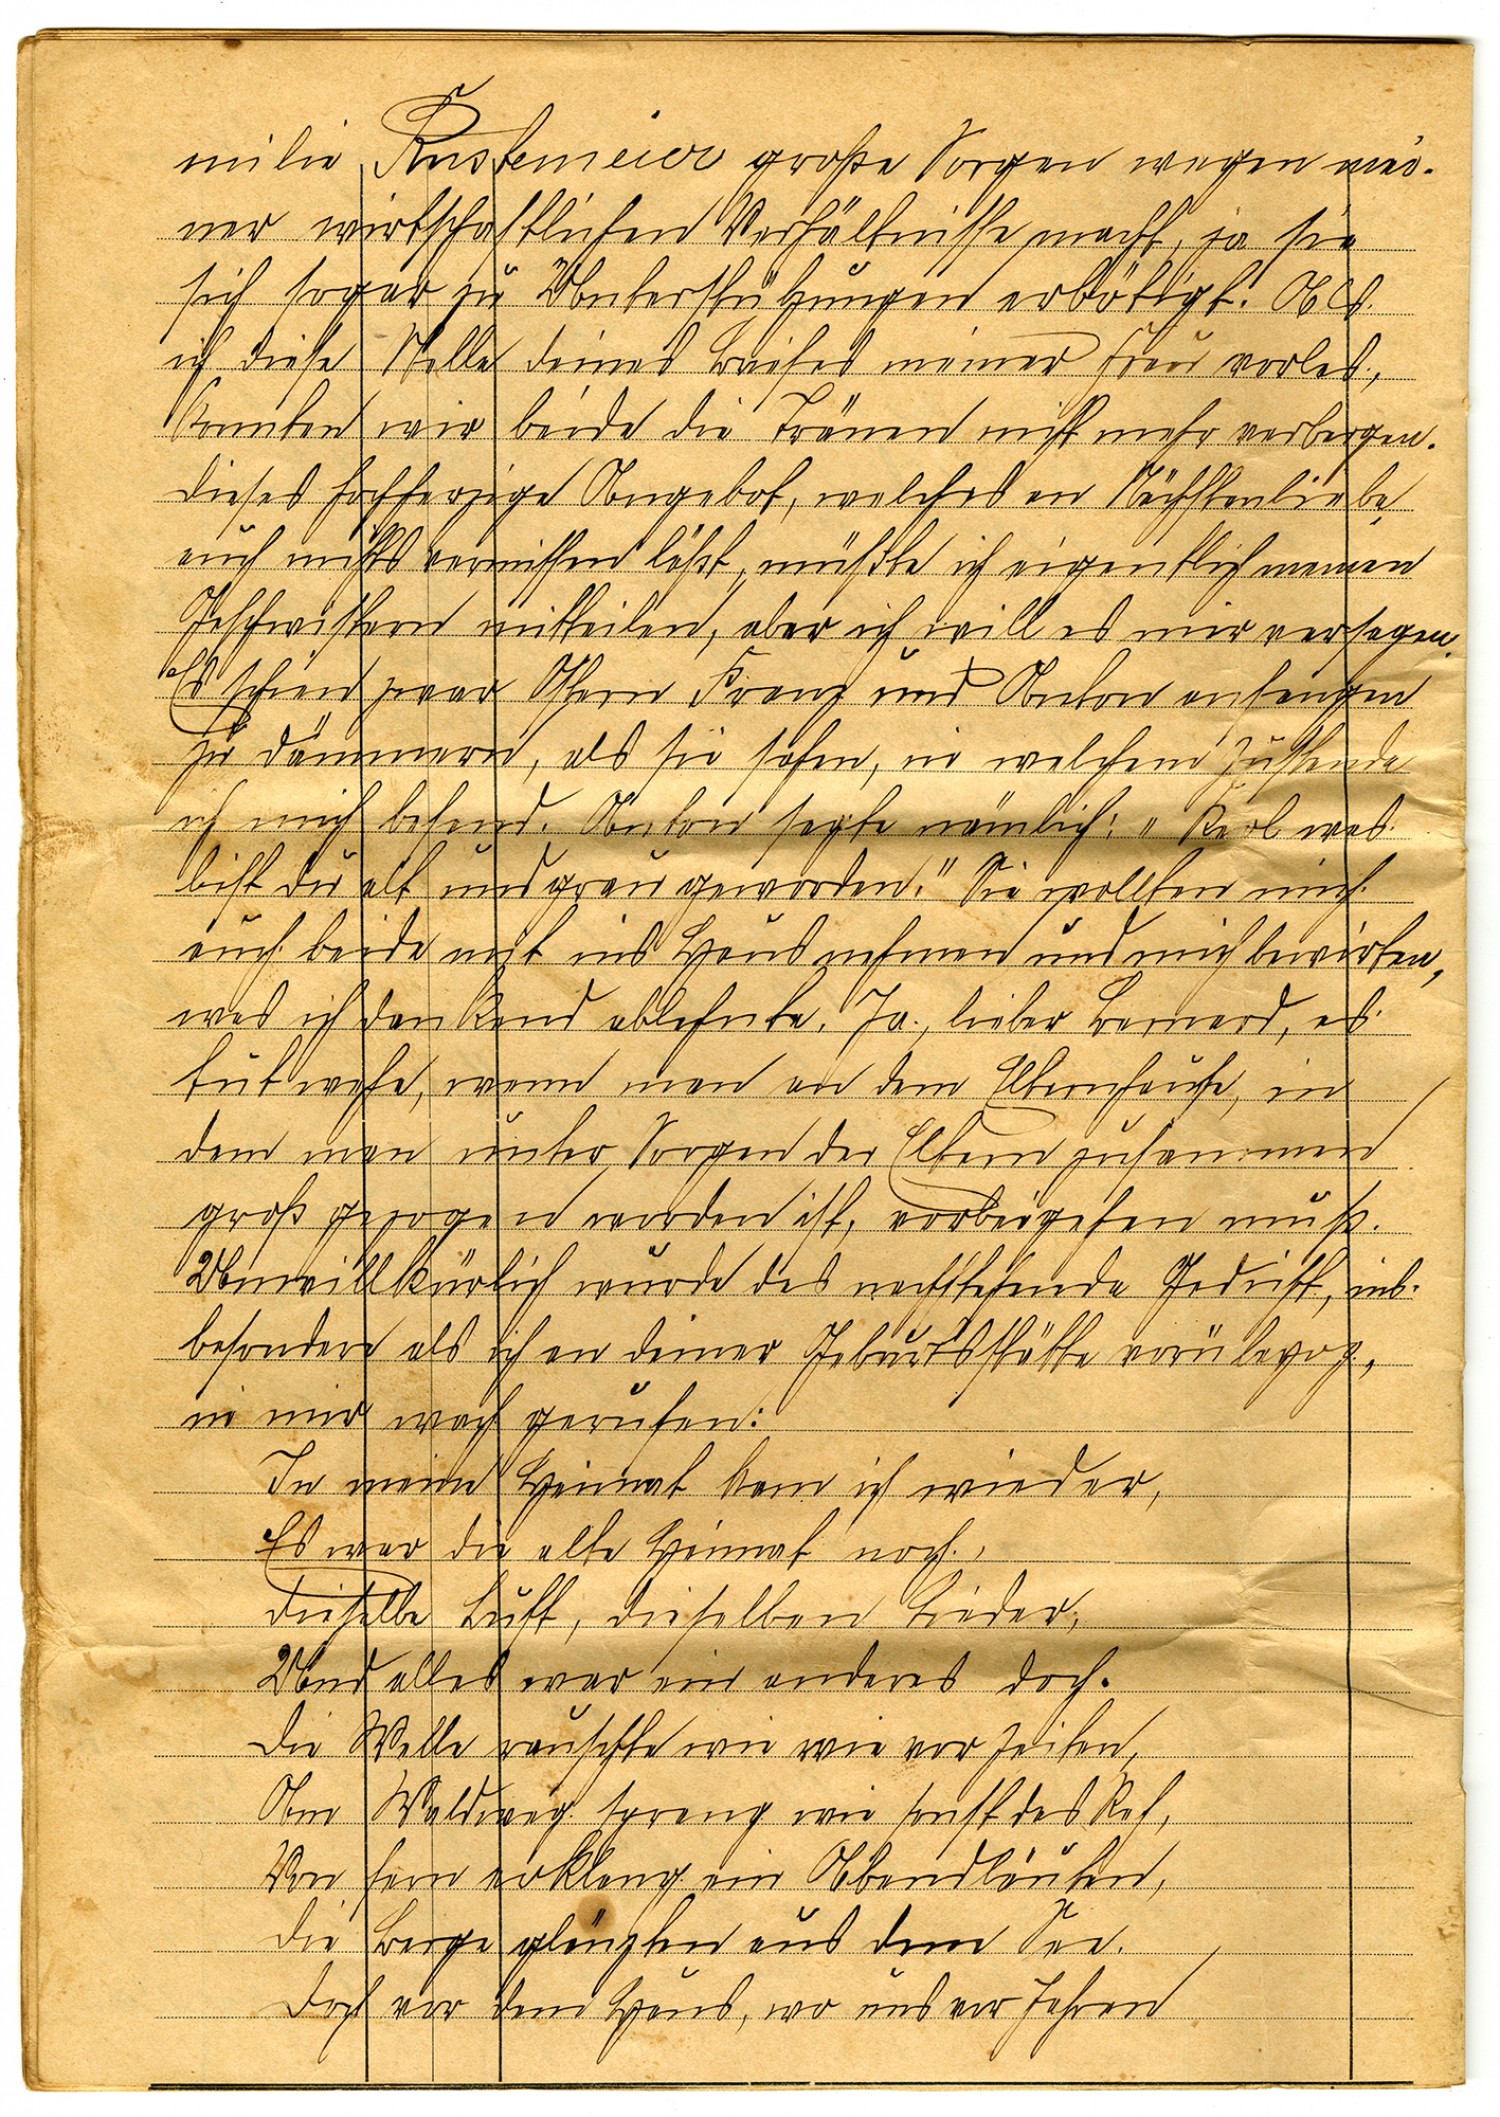 milie Kustemeier große Sorgen wegen mei-
ner wirtschaftlichen Verhältnisse macht, ja sie
sich sogar zu Unterstützungen erbötigt. Als
ich diese Stelle deines Briefes meiner Frau vorlas,
konnten wir beide die Tränen nicht mehr verbergen.
Dieses hochherzige Angebot, welches an Nächstenliebe
auch nichts vermissen läßt, müßte ich eigentlich meinen
Geschwistern mitteilen, aber ich will es mir versagen.
Es schien zwar Ohem Franz und Anton anfangen
zu dämmern, als sie sahen, in welchem Zustande
ich mich befand. Anton sagte nämlich: „Karl was
bist du alt und grau geworden." Sie wollten mich
auch beide mit ins Haus nehmen und mich bewirten,
was ich dankend ablehnte. Ja, lieber Bernard, es
tut wehe, wenn man an dem Elternhause, in
dem man unter Sorgen der Eltern zusammen
groß gezogen worden ist, vorbeigehen muß.
Unwillkürlich wurde das nachstehende Gedicht, ins-
besondere als ich an deiner Geburtsstätte vorüberzog,
in mir wach gerufen:
In meine Heimat kam ich wieder,
Es war die alte Heimat noch,
Dieselbe Luft, dieselben Lieder,
Und alles war ein anderes doch.
Die Welle rauschte wie wie vor Zeiten,
Am Waldweg sprang wie sonst das Reh,
Von fern erklang ein Abendläuten,
Die Berge glänzten aus dem See.
Doch vor dem Haus, wo uns vor Jahren